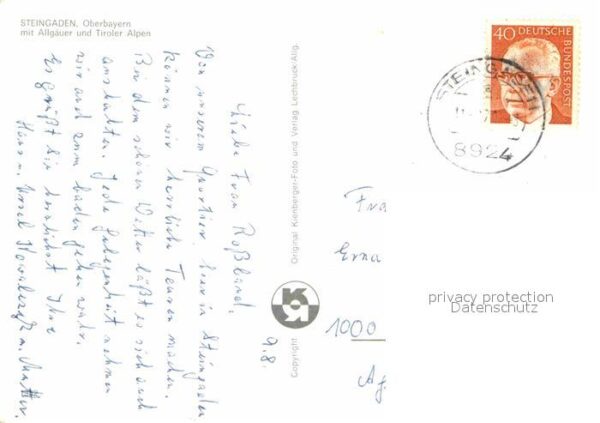 STEINGADEN, Oberbayern
mit Allgäuer und Tiroler Alpen
9.8.
Liebe Frau Roßband,
Von unserem Quartier hier in Steingaden
können wir herrliche Touren machen.
Bei dem schönen Wetter läßt es sich auch
aushalten. Jede Gelegenheit nehmen
wir auch zum baden gehen wahr.
Es grüßt Sie herzlichst Ihre
Hann. u. Mutter.
Copyright
Original Kienberger-Foto und Verlag Lechbruck/Allg.
40
DEUTSCHE
BUNDESPOST
STEINGADEN
8924
Fra
Erna
1000
privacy protection
Datenschutz